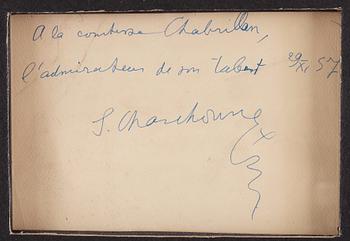 A la comtesse Chabrillan,
l'admirateur de son talent 29/XI 57
S. Charchoune